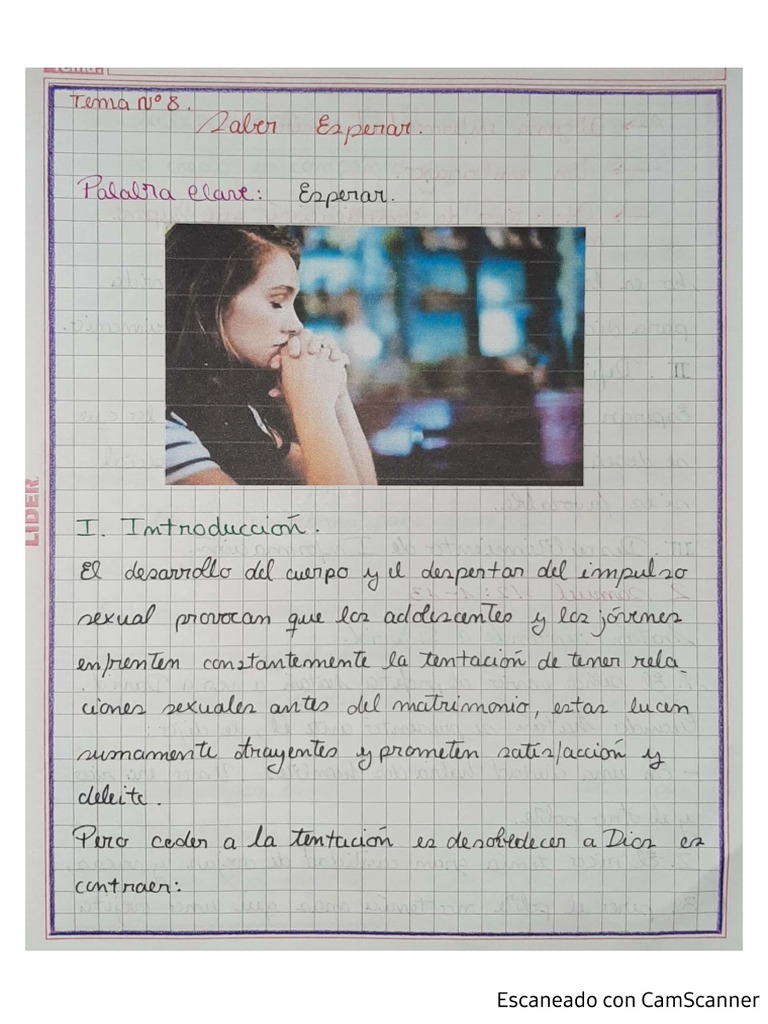 Tema:
Tema Nº 8.
Saber Esperar.
Palabra clave: Esperar.
LIDER
I. Introducción.
El desarrollo del cuerpo y el despertar del impulso
sexual provocan que los adolescentes y los jóvenes
enfrenten constantemente la tentación de tener rela-
ciones sexuales antes del matrimonio, estas lucen
sumamente atrayentes y prometen satisfacción y
deleite.
Pero ceder a la tentación es desobedecer a Dios es
contraer:
Escaneado con CamScanner